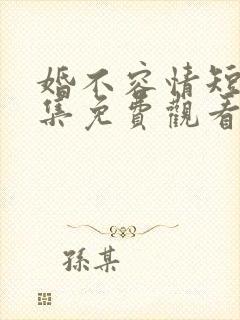 婚不容情短
集免費觀看
孫某